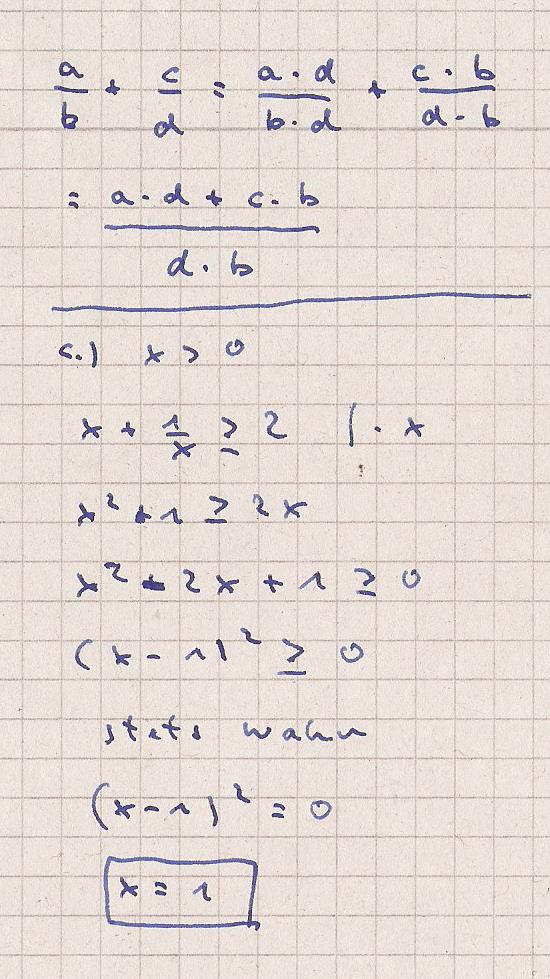 a/b + c/d = a · d / b · d + c · b / d · b
= a · d + c · b / d · b
c.) x > 0
x + 1/x ≥ 2 | · x
x² + 1 ≥ 2x
x² - 2x + 1 ≥ 0
(x - 1)² ≥ 0
stets wahr
(x - 1)² = 0
x = 1